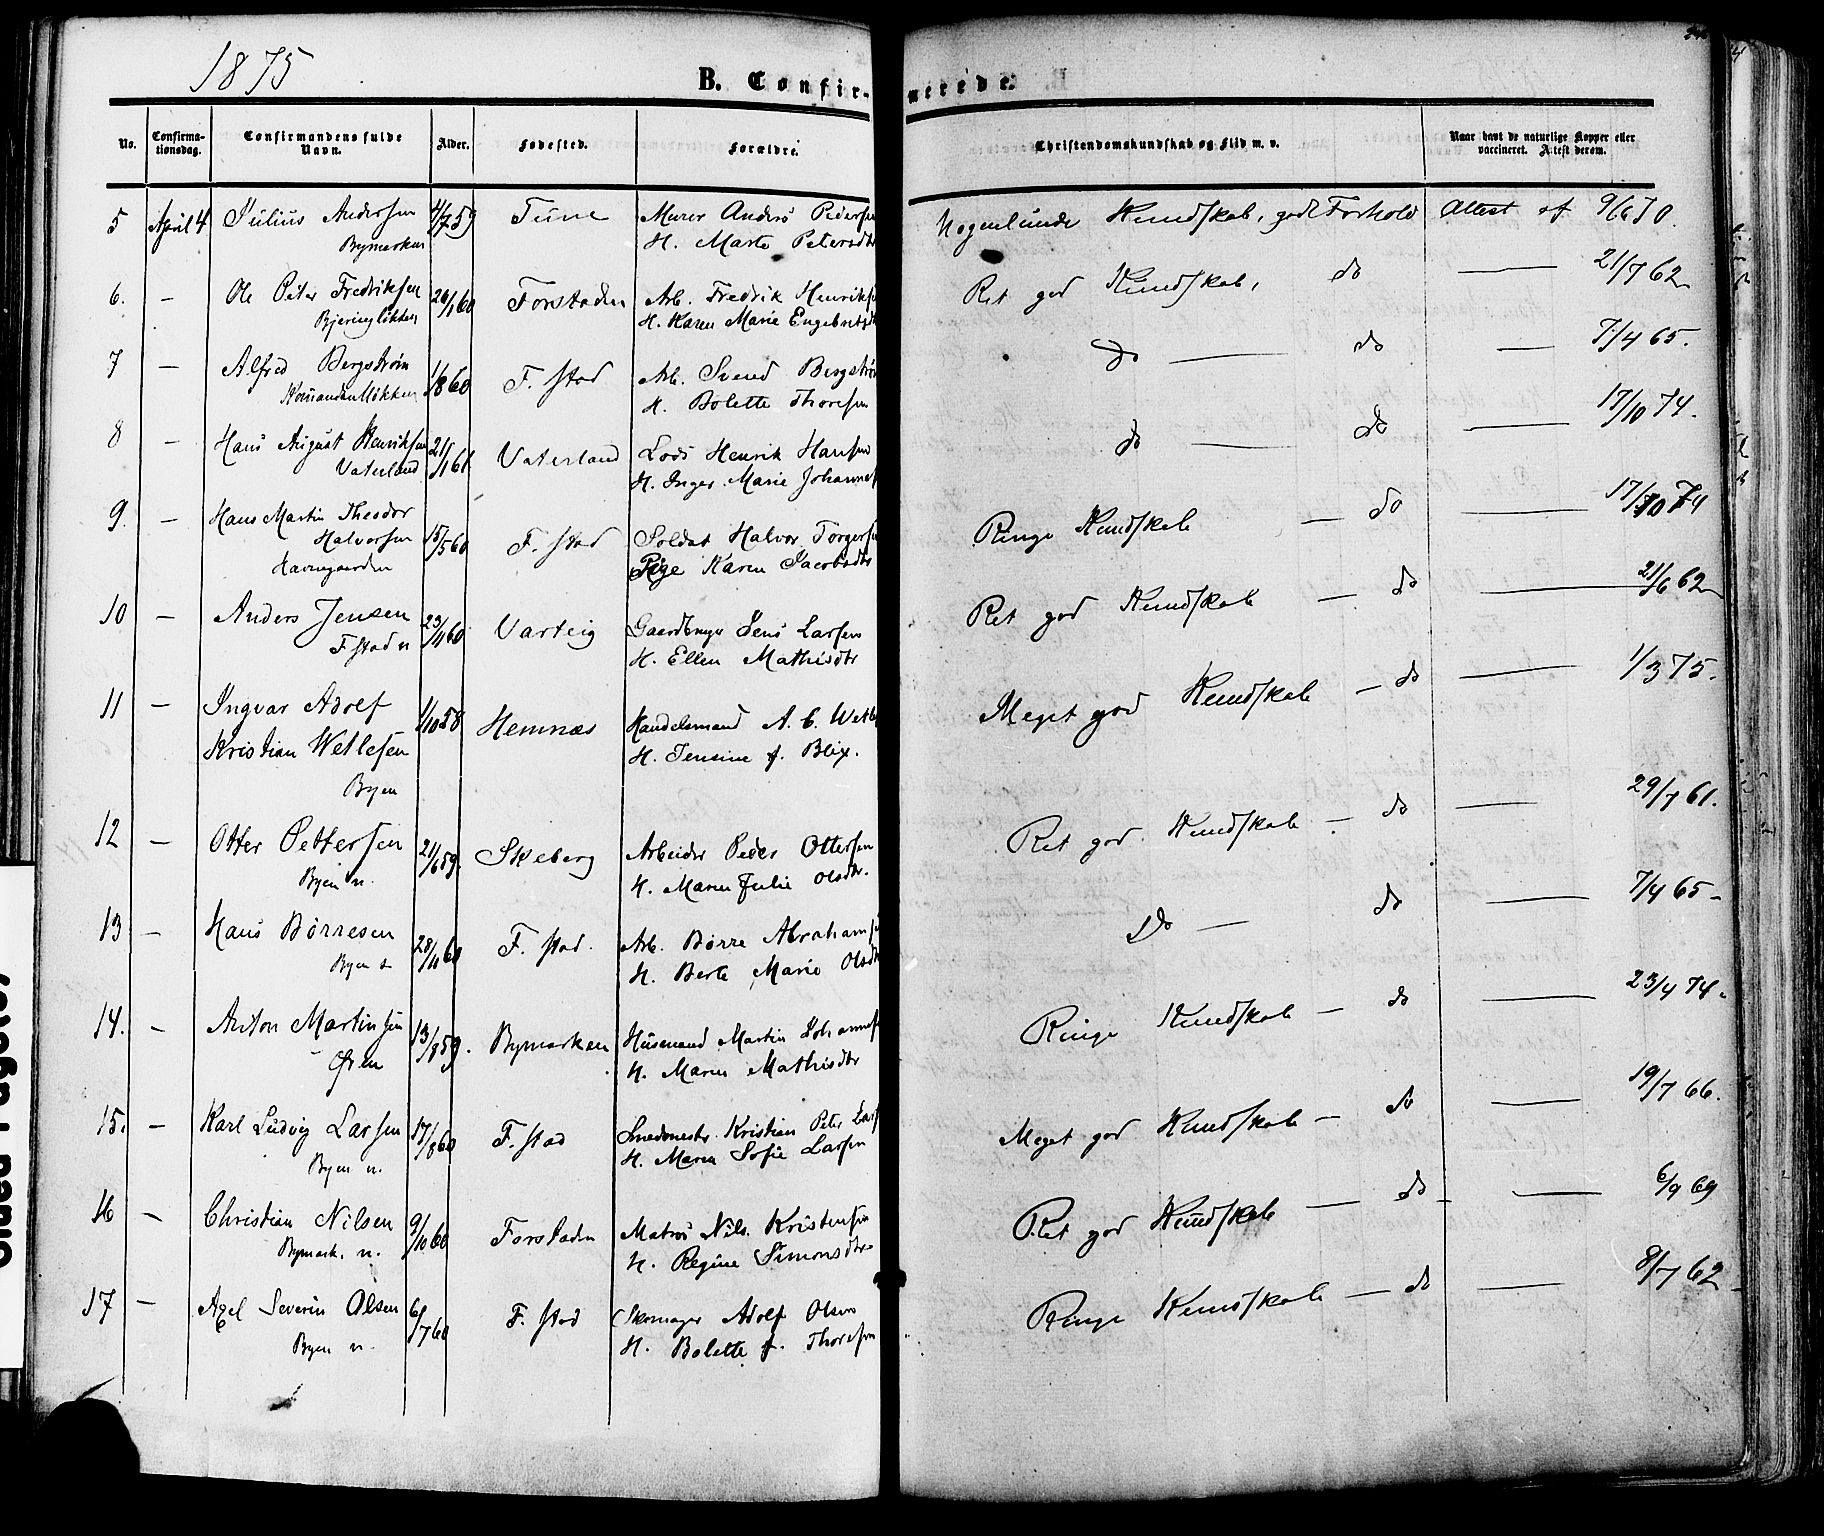 1875
B. Confir-
merede.
No.
Confirma-
tionsdag.
Confirmandens fulde
Navn.
Alder.
Fødested.
Forældre.
Christendomskundskab og Flid m. v.
Naar havt de naturlige Kopper eller
vaccineret. Attest derom.
5 April 4 Julius Andersen 4/7 59 Tune Murer Anders Pedersen Nogenlunde Kundskab, godt Forhold Attest af 9/6 70.
Bymarken H. Marte Petersdtr
6. — Ole Peter Fredriksen 20/1 60 Forstaden Arb. Fredrik Henriks Ret god Kundskab, do — 21/7 62
Bjeringløkken H. Karen Marie Engebretsdtr
7 — Alfred Bergstrøm 1/8 60 F. stad Arb. Svend Bergstrøm do — do — 7/4 65.
H. Bolette Thoresen
8 — Hans August Henriksen 21/1 61 Vaterland Lods Henrik Hansen do — do — 17/10 74.
Vaterland H. Inger Marie Johannes
9. — Hans Martin Theodor
Halvorsen 15/5 60 F. stad Soldat Halvor Torgersen Ringe Kundskab — do — 17/10 74
Havnegaarden Pige Karen Jacobsdtr
10 — Anders Jensen 23/11 60 Varteig Gaardbruger Jens Larsen Ret god Kundskab — do — 21/6 62
F stad n H. Ellen Mathisdtr
11 — Ingvar Adolf 1/10 58 Hemnæs Handelsmand A. C. Wetl Meget god Kundskab — do — 1/3 75.
Kristian Wetlesen H. Jensine f. Blix.
Byen
12 — Otter Pettersen 21/6 59. Skeberg Arbeider Peder Ottersen Ret god Kundskab — do — 29/7 61.
Byen n. H. Maren Julie Olsdtr.
13 — Hans Børresen 28/11 60 F. stad. Arb. Børre Abrahams Do — do — 7/4 65 -
Byen s H. Berte Marie Olsdtr
14. — Anton Martinsen 13/8 59. Bymarken Husmand Martin Johannes Ringe Kundskab — do — 23/4 74.
H. Maren Mathisdtr
15. — Karl Ludvig Larsen 17/8 60 F. stad Smedmestr. Kristian Peter Lars Meget god Kundskab — do — 19/7 66.
Byen n. H. Maren Sofie Larsen
16 — Christian Nilsen 9/10 60 Forstaden Matros Nils Kristensen Ret god Kundskab — do — 6/9 69
Bymark. n. H. Regine Simonsdtr
17 — Axel Severin Olsen 6/7 60 F. stad Skomager Adolf Olsen Ringe Kundskab — do — 8/7 62
Byen n. H. Bolette f. Thoresen